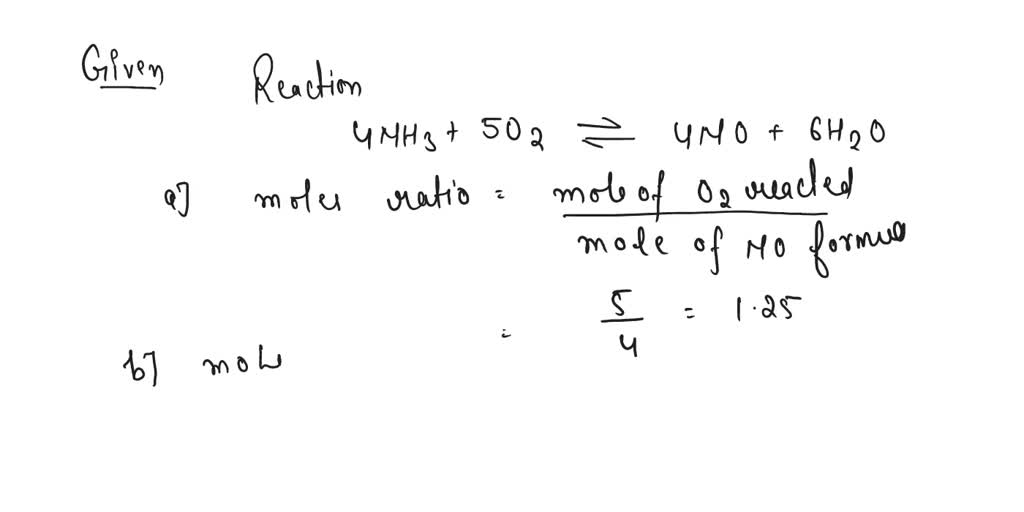 Given Reaction
4NH3 + 5O2 ⇌ 4NO + 6H2O
a] moles ratio = mole of O2 reacted
mole of NO formed
= 5/4 = 1.25
b] mole